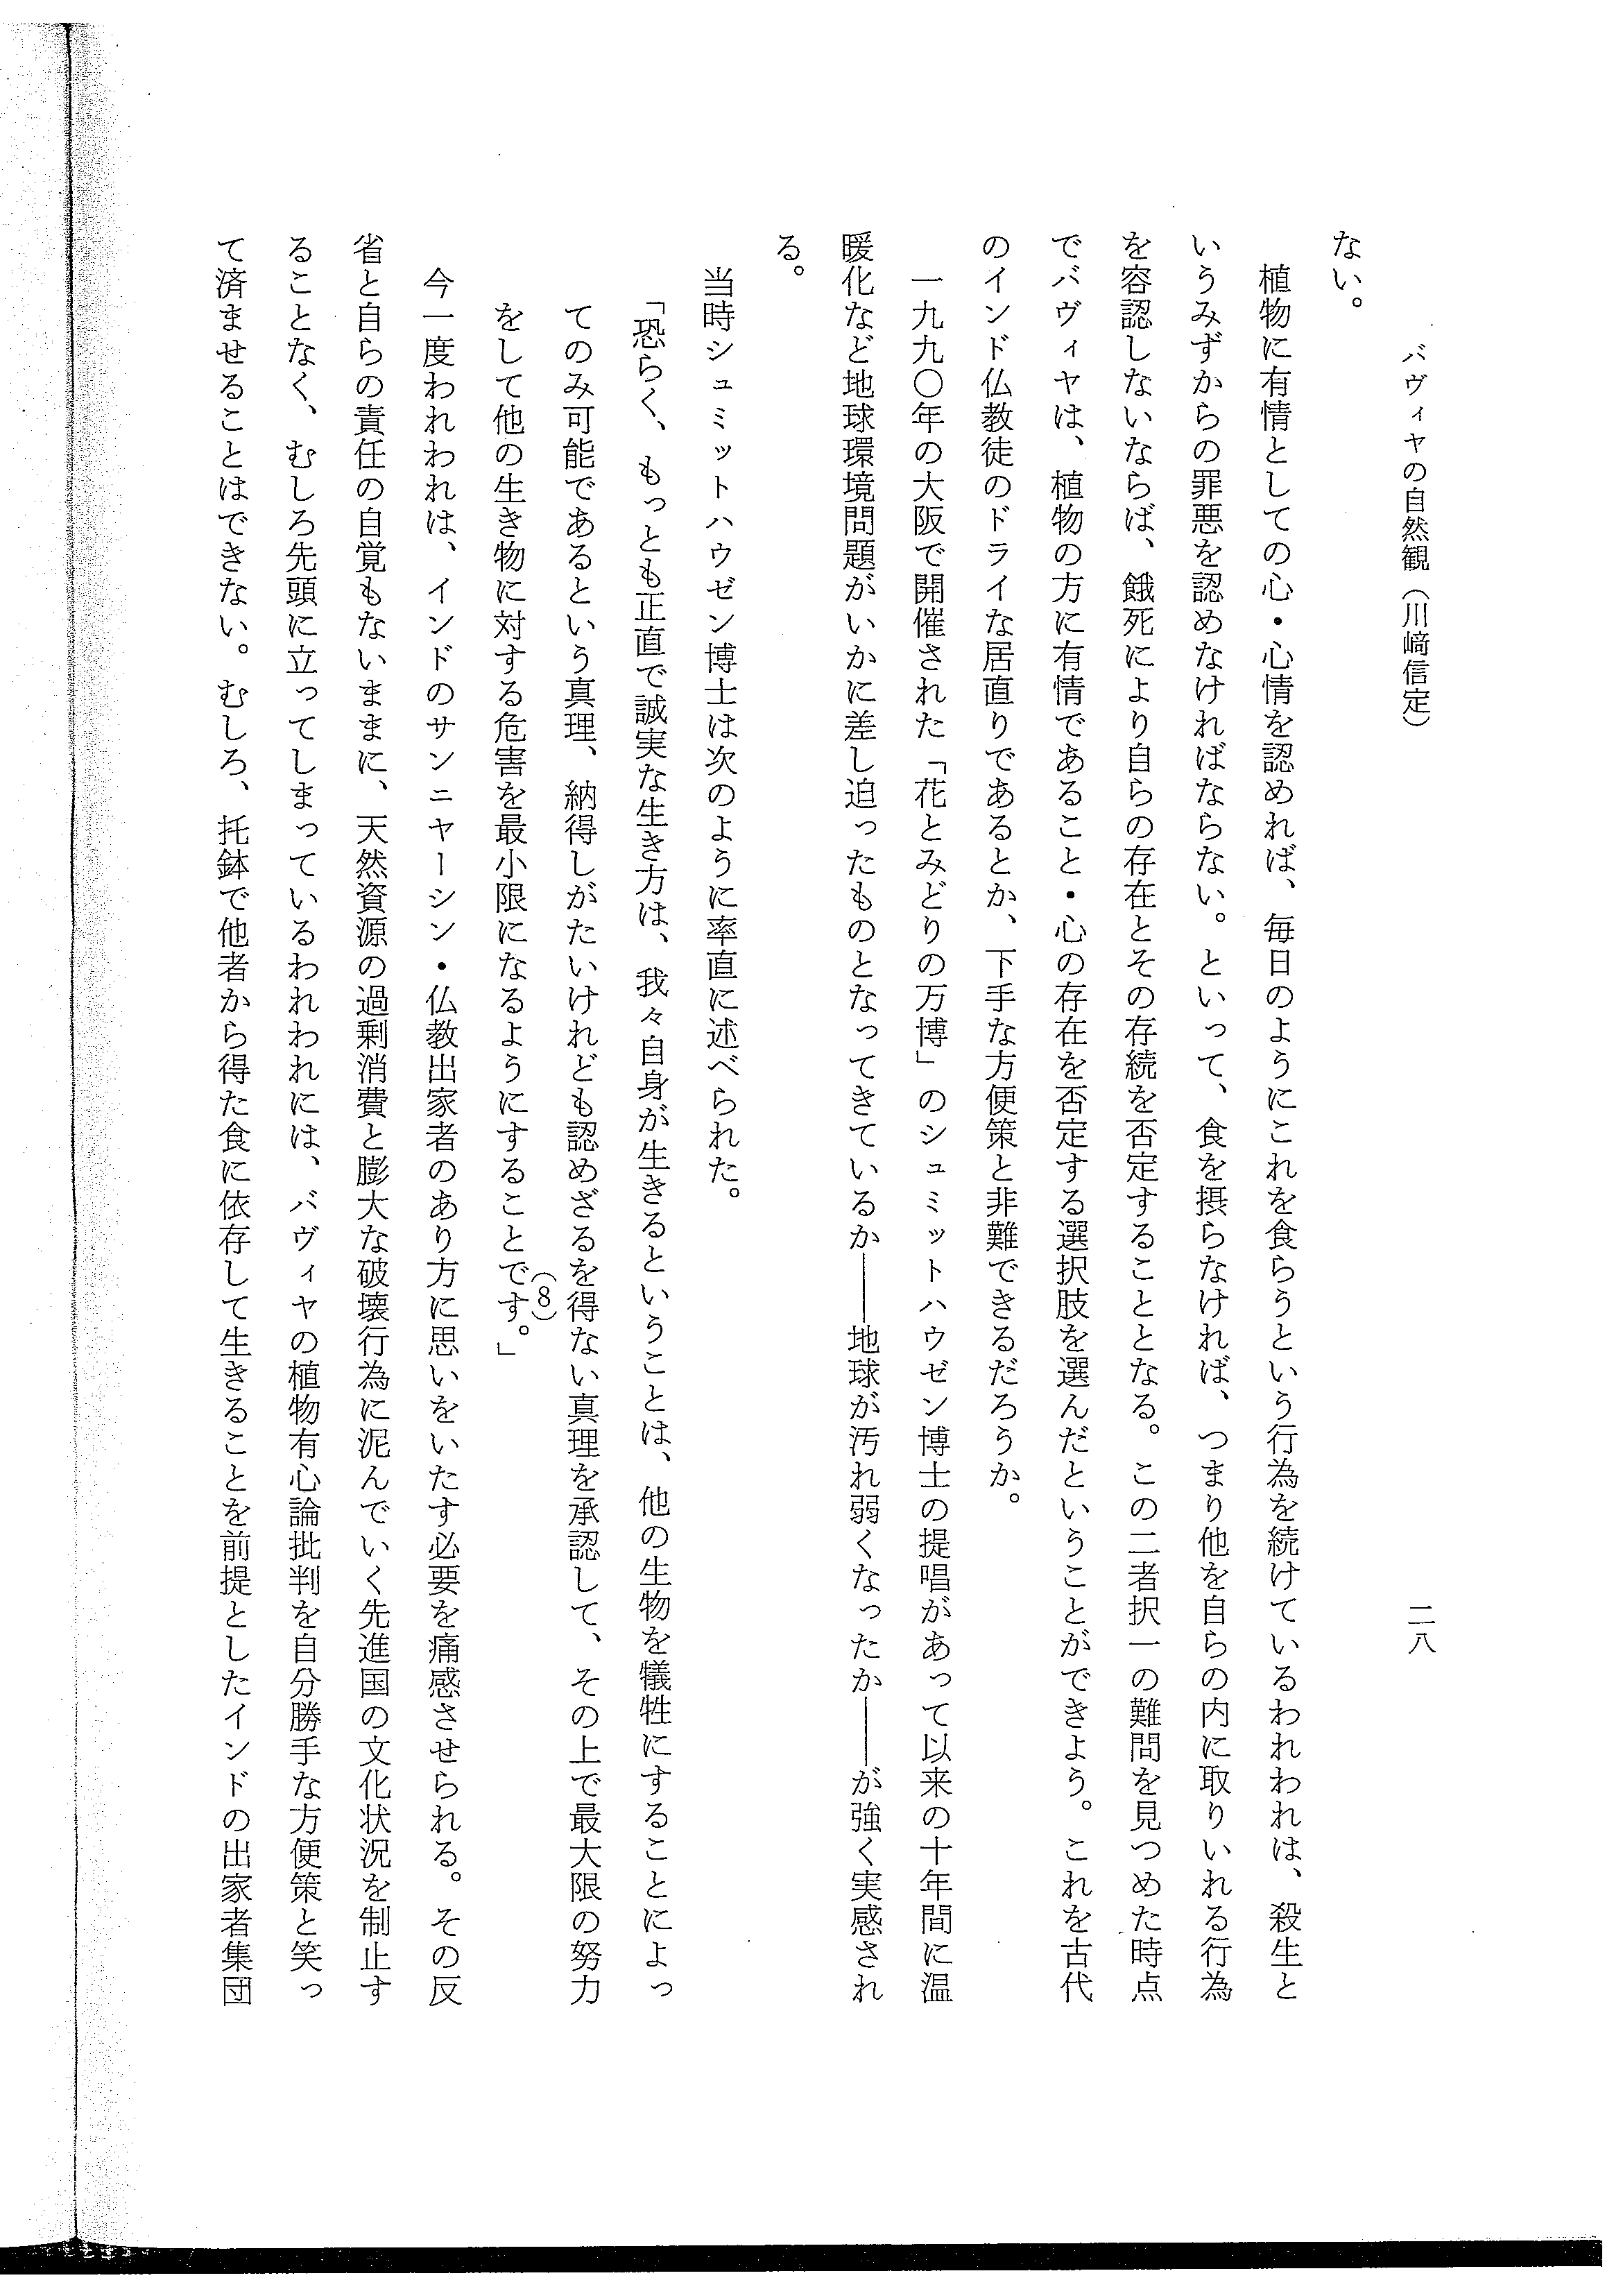 バヴィヤの自然観（川﨑信定）
二八
ない。
植物に有情としての心・心情を認めれば、毎日のようにこれを食らうという行為を続けているわれわれは、殺生と
いうみずからの罪悪を認めなければならない。といって、食を摂らなければ、つまり他を自らの内に取りいれる行為
を容認しないならば、餓死により自らの存在とその存続を否定することとなる。この二者択一の難問を見つめた時点
でバヴィヤは、植物の方に有情であること・心の存在を否定する選択肢を選んだということができよう。これを古代
のインド仏教徒のドライな居直りであるとか、下手な方便策と非難できるだろうか。
一九九〇年の大阪で開催された「花とみどりの万博」のシュミットハウゼン博士の提唱があって以来の十年間に温
暖化など地球環境問題がいかに差し迫ったものとなってきているか――地球が汚れ弱くなったか――が強く実感され
る。
当時シュミットハウゼン博士は次のように率直に述べられた。
「恐らく、もっとも正直で誠実な生き方は、我々自身が生きるということは、他の生物を犠牲にすることによっ
てのみ可能であるという真理、納得しがたいけれども認めざるを得ない真理を承認して、その上で最大限の努力
をして他の生き物に対する危害を最小限になるようにすることです。」（8）
今一度われわれは、インドのサンニヤーシン・仏教出家者のあり方に思いをいたす必要を痛感させられる。その反
省と自らの責任の自覚もないままに、天然資源の過剰消費と膨大な破壊行為に泥んでいく先進国の文化状況を制止す
ることなく、むしろ先頭に立ってしまっているわれわれには、バヴィヤの植物有心論批判を自分勝手な方便策と笑っ
て済ませることはできない。むしろ、托鉢で他者から得た食に依存して生きることを前提としたインドの出家者集団